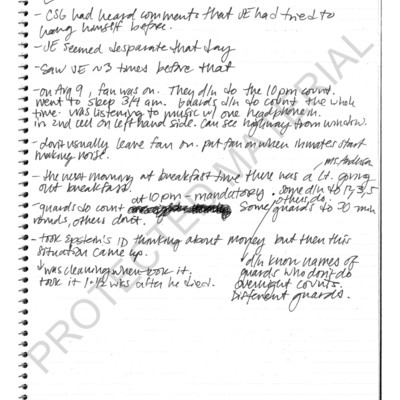 - CSG had heard comments that JE had tried to
hang himself before.
- JE seemed desperate that day
- Saw JE ~3 times before that
- on Aug 9, fan was on. They d/n do the 10 pm count.
went to sleep 3/4 am. Guards d/n do count the whole
time. Was listening to music w/ one headphone in.
in 2nd cell on left hand side. Can see highway from window.
- don't usually leave fan on. put fan on when inmates start
making noise.
- the next morning at breakfast time there was a Lt. giving
out breakfast.
at 10 pm - mandatory. some d/n do 12, 3, 5
others do.
- guards do count
Some guards do 30 min
rounds, others don't.
- took Epstein's ID thinking about money but then this
situation came up.
↓ was cleaning when took it.
took it 1-1½ wks after he died.
↓ d/n know names of
guards who don't do
overnight counts.
Different guards.
PROTECTED MATERIAL